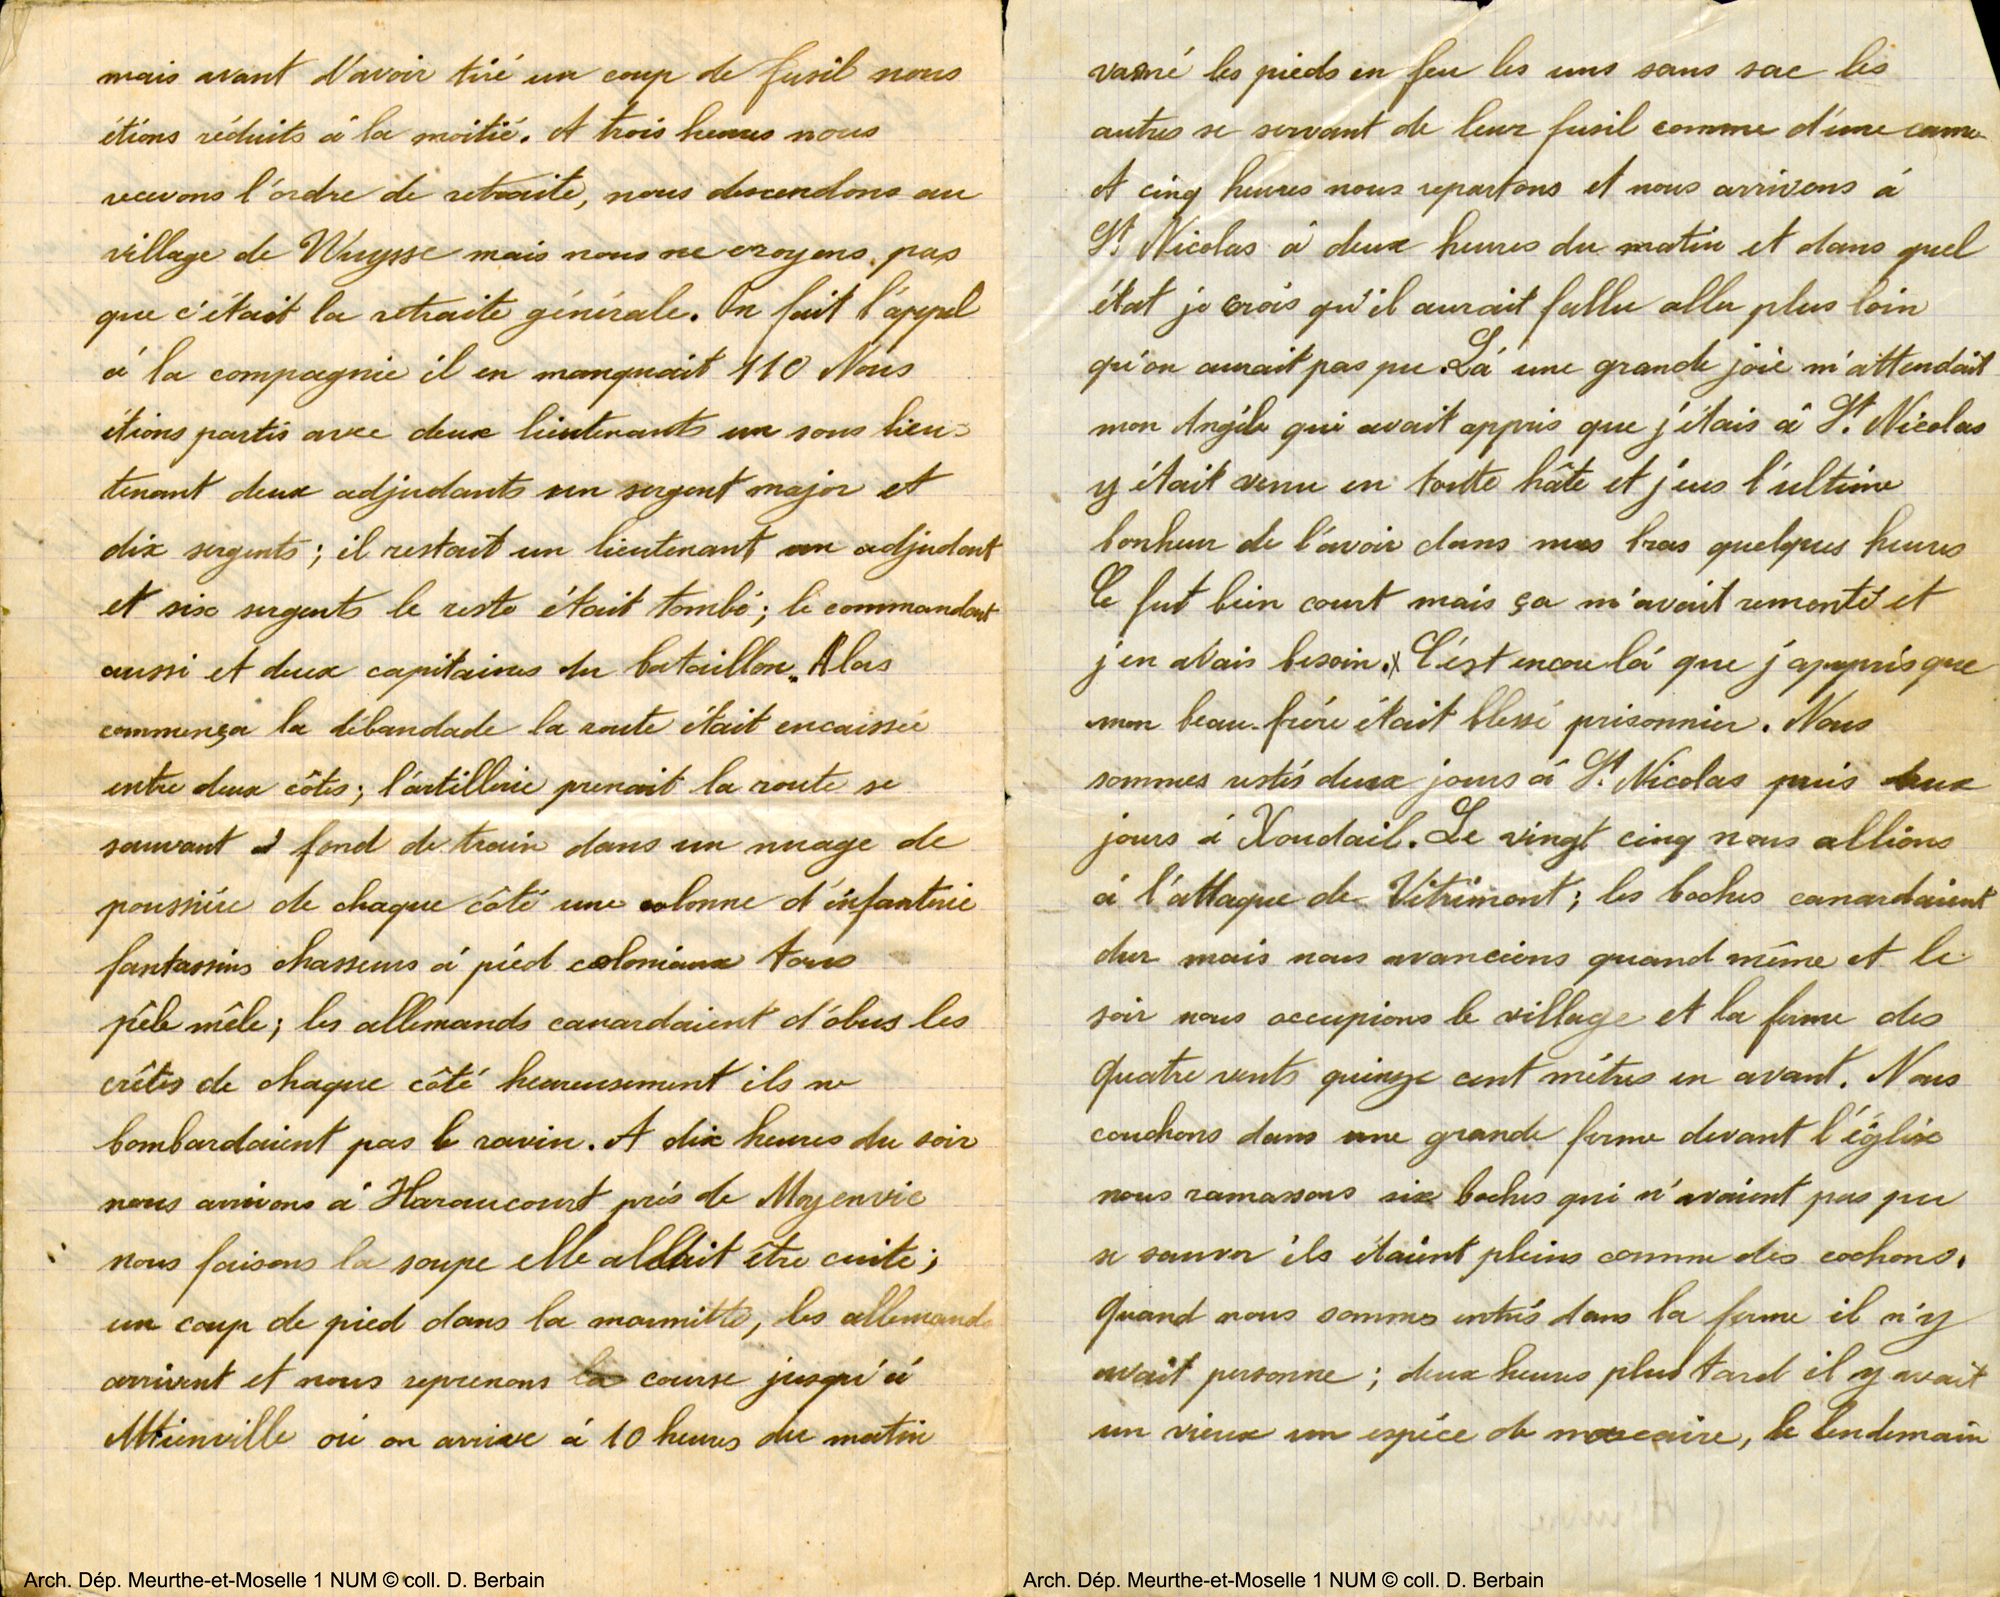 mais avant d'avoir tiré un coup de fusil nous
étions réduits à la moitié. A trois heures nous
recevons l'ordre de retraite, nous descendons au
village de Wuysse mais nous ne croyons pas
que c'était la retraite générale. On fait l'appel
à la compagnie il en manquait 110 Nous
étions partis avec deux lieutenants un sous lieu-
tenant deux adjudants un sergent major et
dix sergents ; il restait un lieutenant un adjudant
et six sergents le reste était tombé ; le commandant
aussi et deux capitaines du bataillon. Alors
commença la débandade la route était encaissée
entre deux côtes ; l'artillerie prenait la route se
sauvant à fond de train dans un nuage de
poussière de chaque côté une colonne d'infanterie
fantassins chasseurs à pied coloniaux tous
pêle mêle ; les allemands canardaient d'obus les
crêtes de chaque côté heureusement ils ne
bombardaient pas le ravin. A dix heures du soir
nous arrivons à Haraucourt près de Moyenvic
nous faisons la soupe elle allait être cuite ;
un coup de pied dans la marmitte, les allemands
arrivent et nous reprenons la course jusqu'à
où on arrive à 10 heures du matin
Arch. Dép. Meurthe-et-Moselle 1 NUM © coll. D. Berbain
vanné les pieds en feu les uns sans sac les
autres se servant de leur fusil comme d'une canne
A cinq heures nous repartons et nous arrivons à
St Nicolas à deux heures du matin et dans quel
état je crois qu'il aurait fallu aller plus loin
qu'on aurait pas pu. Là une grande joie m'attendait
mon Angèle qui avait appris que j'étais à St. Nicolas
y était venu en toutte hâte et j'eus l'ultime
bonheur de l'avoir dans mes bras quelques heures
Ce fut bien court mais ça m'avait remonté et
j'en avais besoin. C'est encore là que j'appris que
mon beau-frère était blessé prisonnier. Nous
sommes restés deux jours à St. Nicolas puis deux
jours à Xoudail. Le vingt cinq nous allions
à l'attaque de Vitrimont ; les boches canardaient
dur mais nous avancions quand même et le
soir nous occupions le village et la ferme des
Quatre vents quinze cent mètres en avant. Nous
couchons dans une grande ferme devant l'église
nous ramassons six boches qui n'avaient pas pu
se sauver ils étaient pleins comme des cochons.
Quand nous sommes entrés dans la ferme il n'y
avait personne ; deux heures plus tard il y avait
un vieux un espèce de marcaire, le lendemain
Arch. Dép. Meurthe-et-Moselle 1 NUM © coll. D. Berbain